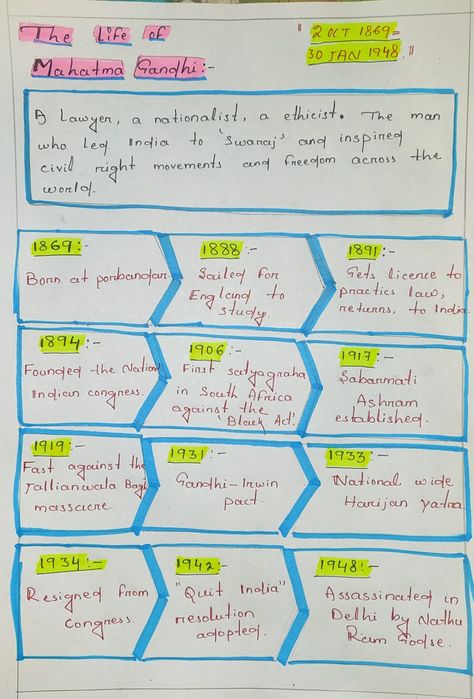 The Life of
Mahatma Gandhi:-
" 2 OCT 1869 -
30 JAN 1948. "
A Lawyer, a nationalist, a ethicist. The man
who led India to 'Swaraj' and inspired
civil right movements and freedom across the
world.
1869:-
Born at porbandar.
1888:-
Sailed for
England to
study.
1891:-
Gets licence to
practics law,
returns, to India.
1894:-
Founded the Nation
Indian congress.
1906:-
First satyagraha
in South Africa
against the
'Black Act'
1917:-
Sabarmati
Ashram
established.
1919:-
Fast against the
Jallianwala Bagh
massacre.
1931:-
Gandhi-Irwin
pact.
1933:-
National wide
Harijan yatra.
1934:-
Resigned from
Congress.
1942:-
"Quit India"
resolution
adopted.
1948:-
Assassinated in
Delhi by Nathu
Ram Godse.